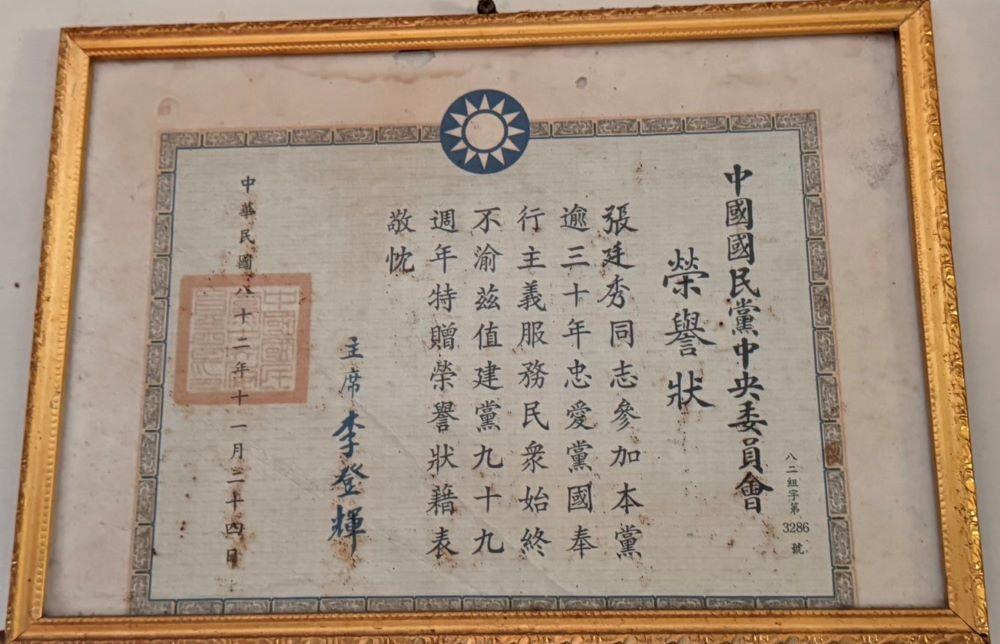 中國國民黨中央委員會
榮譽狀
八二組字第3286號
張廷秀同志參加本黨
逾三十年忠愛黨國奉
行主義服務民衆始終
不渝茲值建黨九十九
週年特贈榮譽狀藉表
敬忱
主席 李登輝
中華民國八十二年十一月二十四日